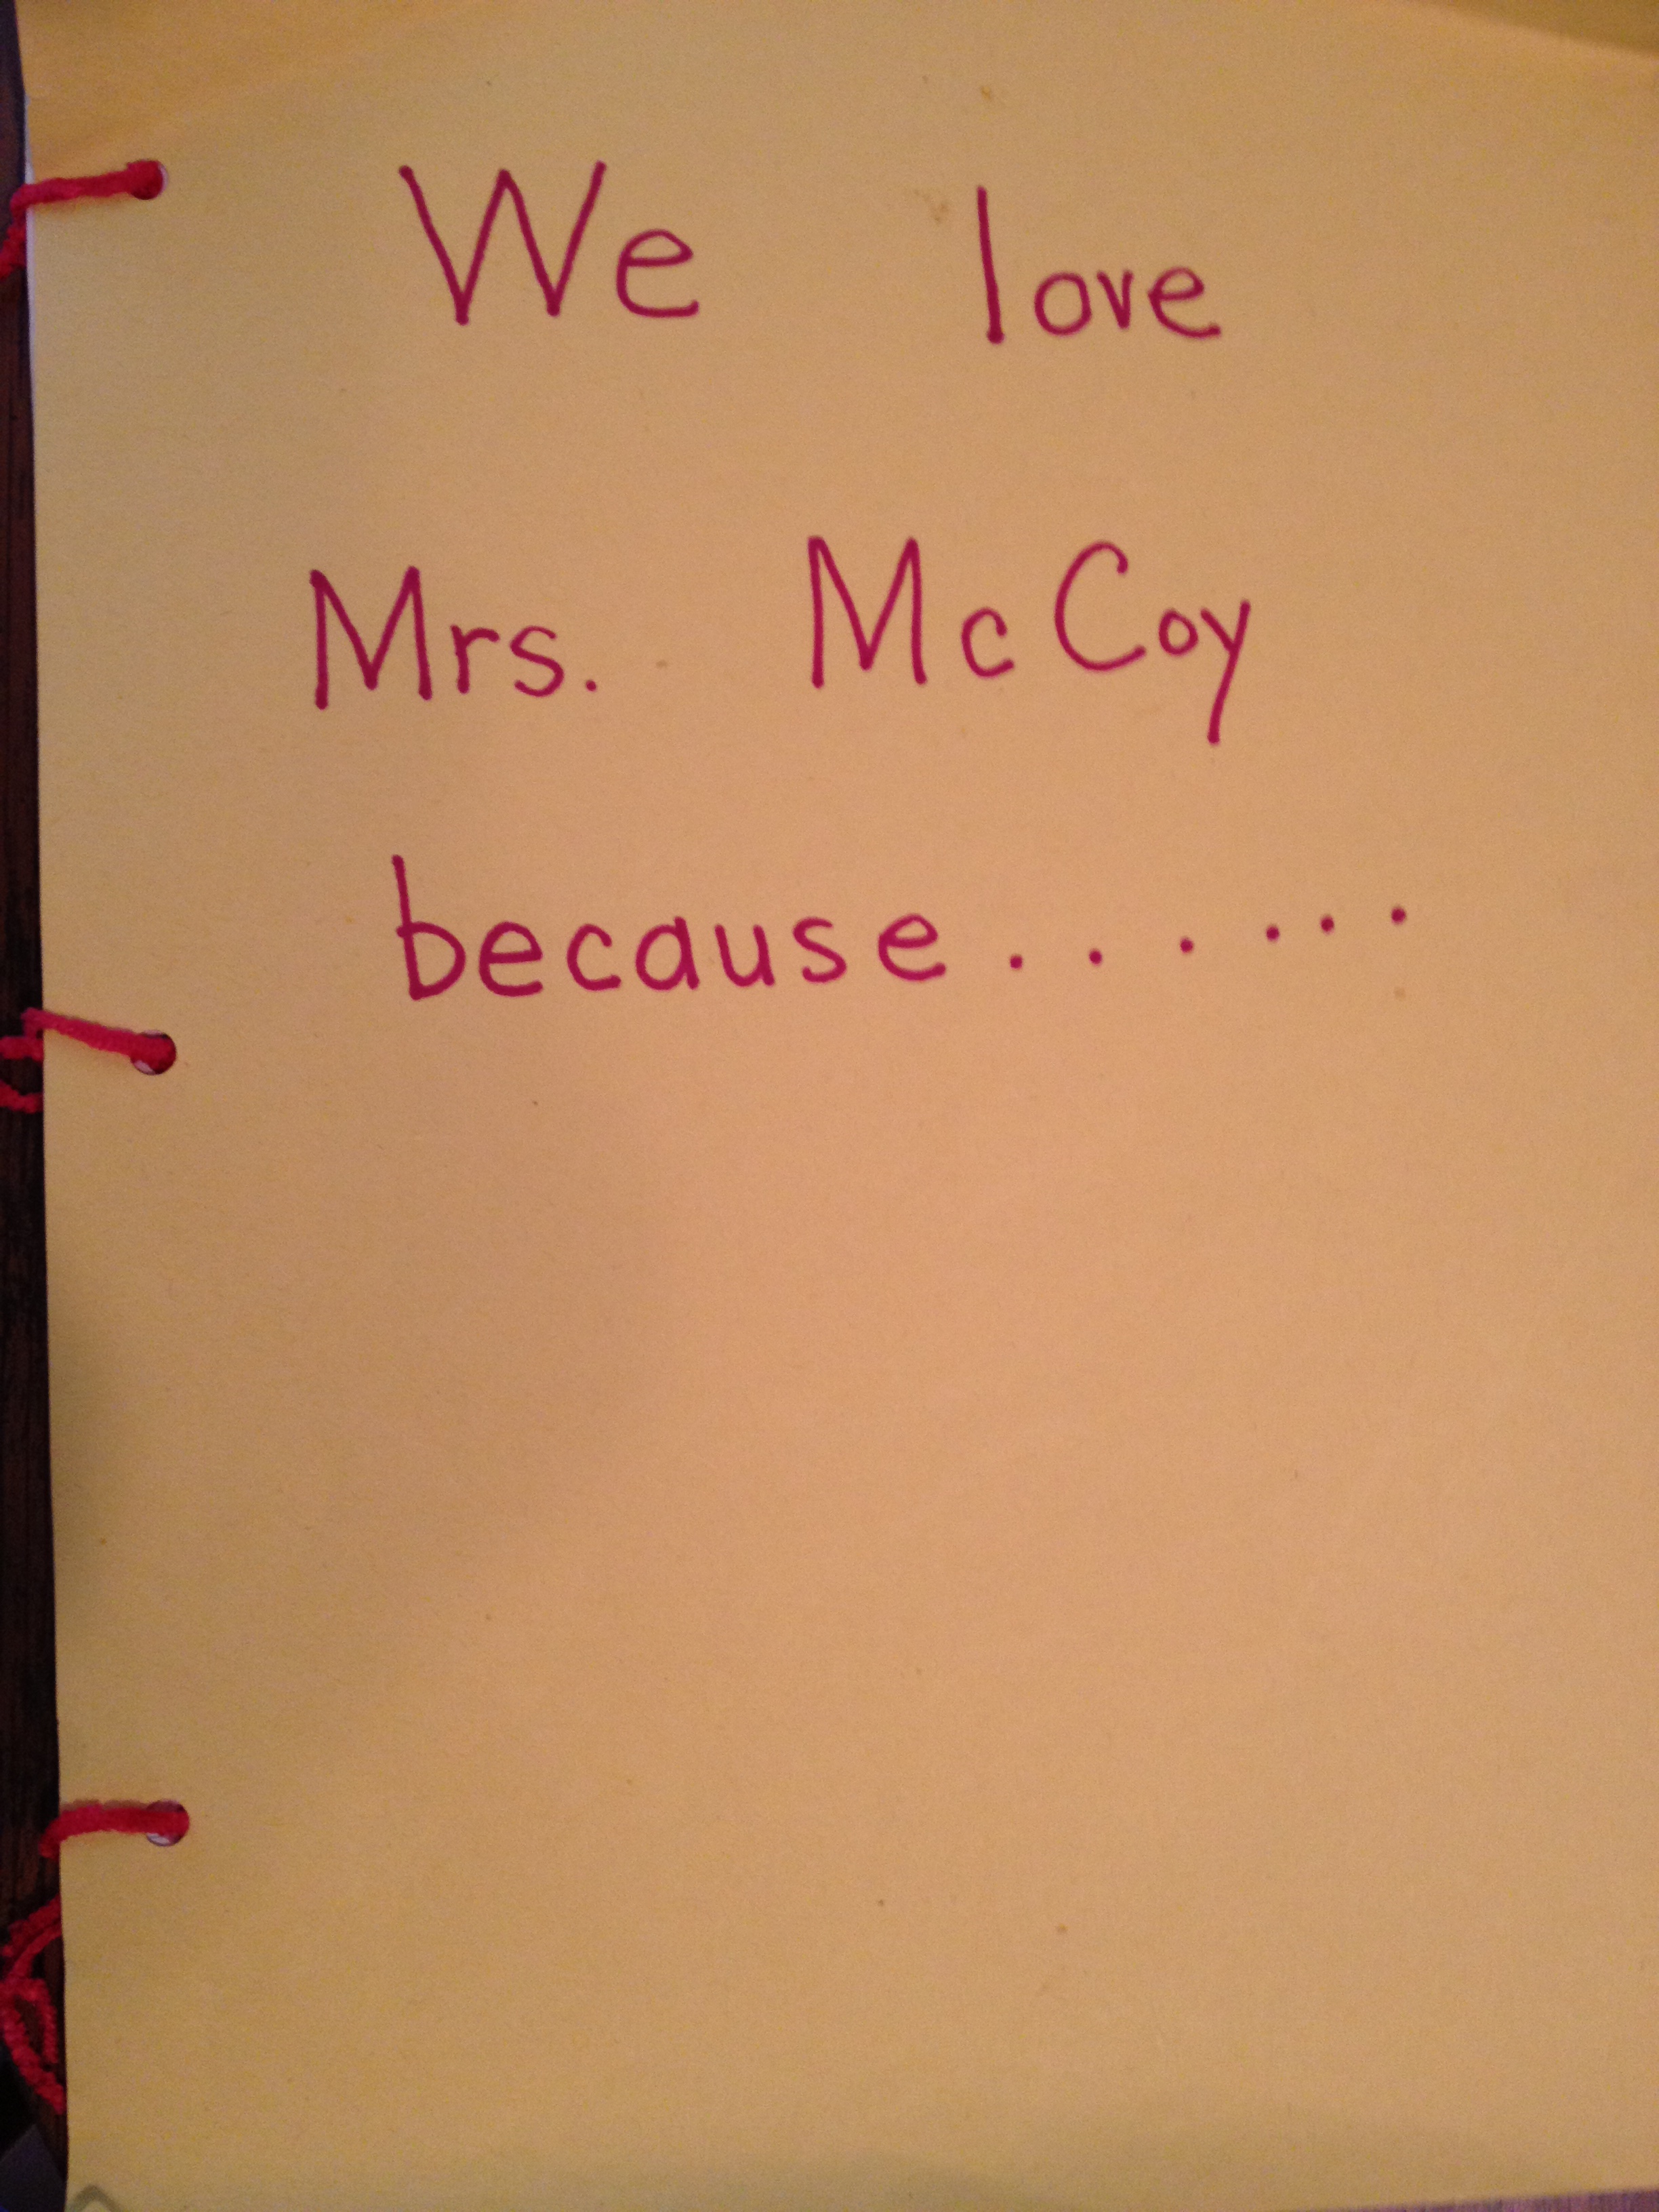 We love
Mrs. McCoy
because......